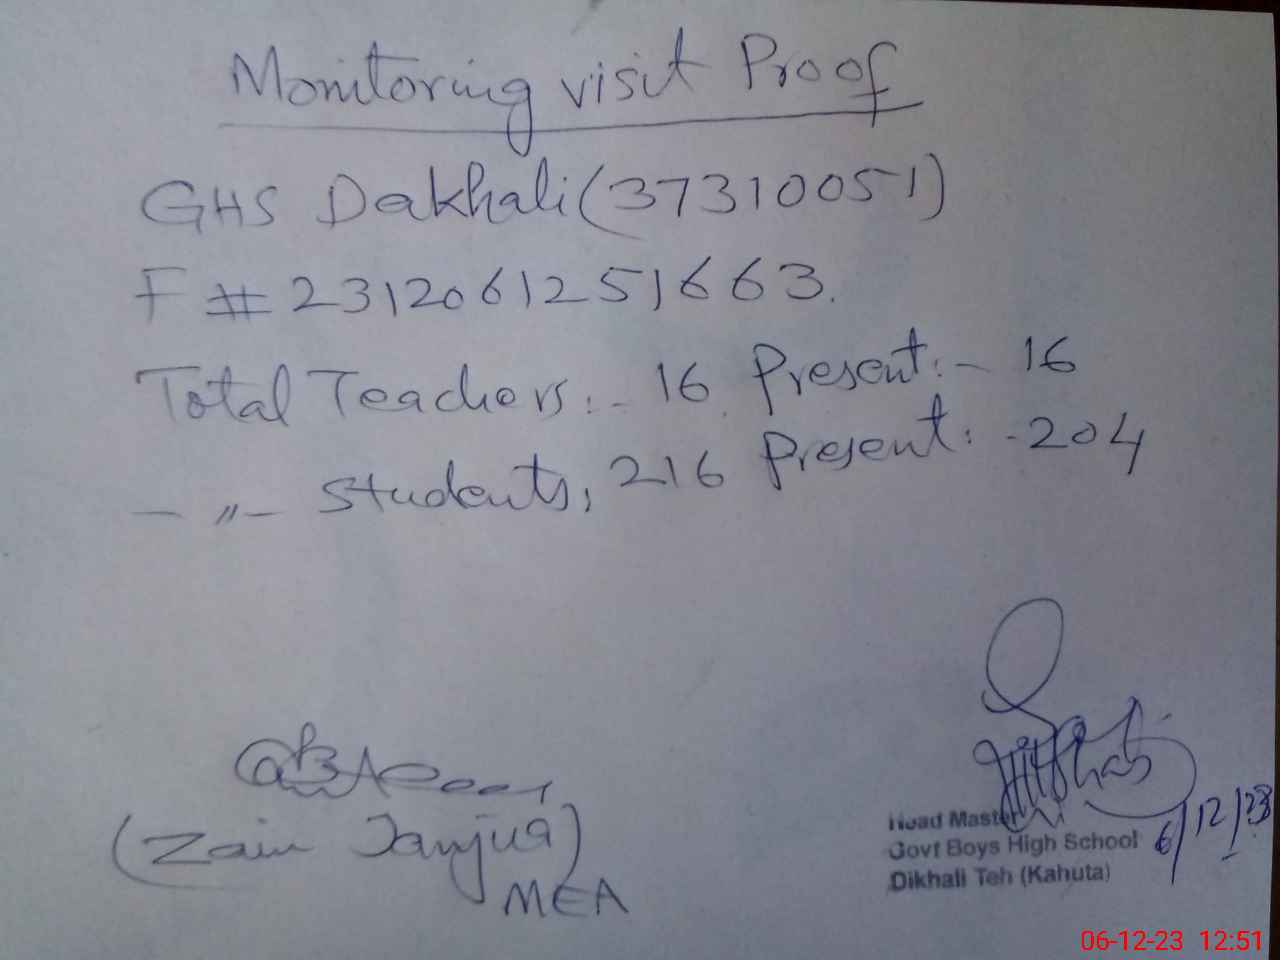 Monitoring visit Proof
GHS Dakhali (37310051)
F # 2312061251663.
Total Teachers :- 16 Present :- 16
-〃- Students, 216 Present : - 204
(Zain Janjua)
MEA
Head Master
Govt Boys High School
Dikhali Teh (Kahuta)
6/12/23
06-12-23 12:51